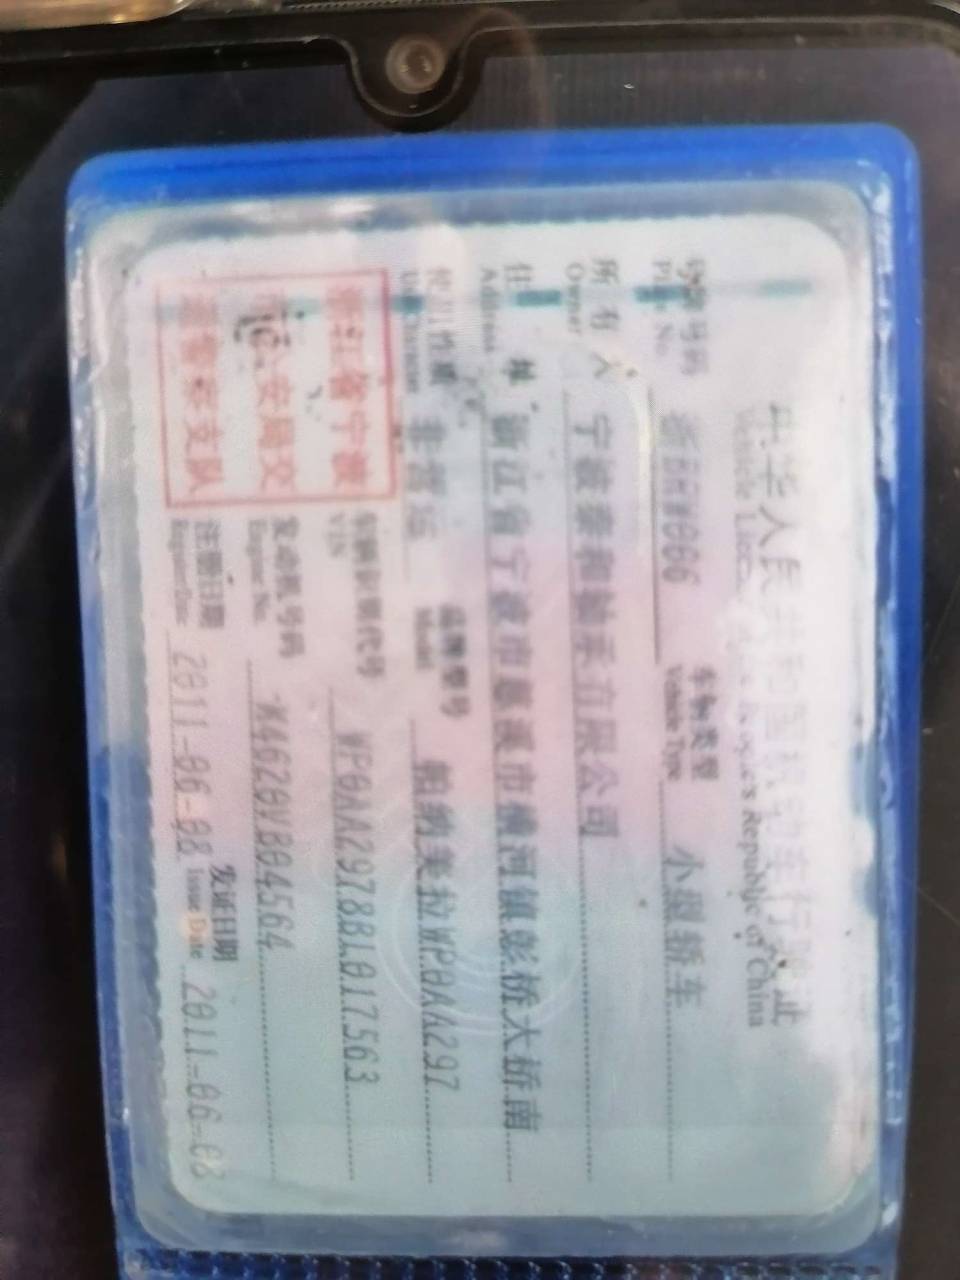 中华人民共和国机动车行驶证
Vehicle License of the People's Republic of China
号牌号码
Plate No.
车辆类型 小型轿车
Vehicle Type
所有人 宁波泰和轴承有限公司
Owner
住址 浙江省宁波市慈溪市横河镇彭桥大桥南
Address
使用性质 非营运
品牌型号 帕纳美拉WP0AA297
Model
浙江省宁波
市公安局交
通警察支队
车辆识别代号 WP0AA2978BL017563
VIN
发动机号码
Engine No.
注册日期 2011-06-08
Register Date
发证日期 2011-06-08
Issue Date